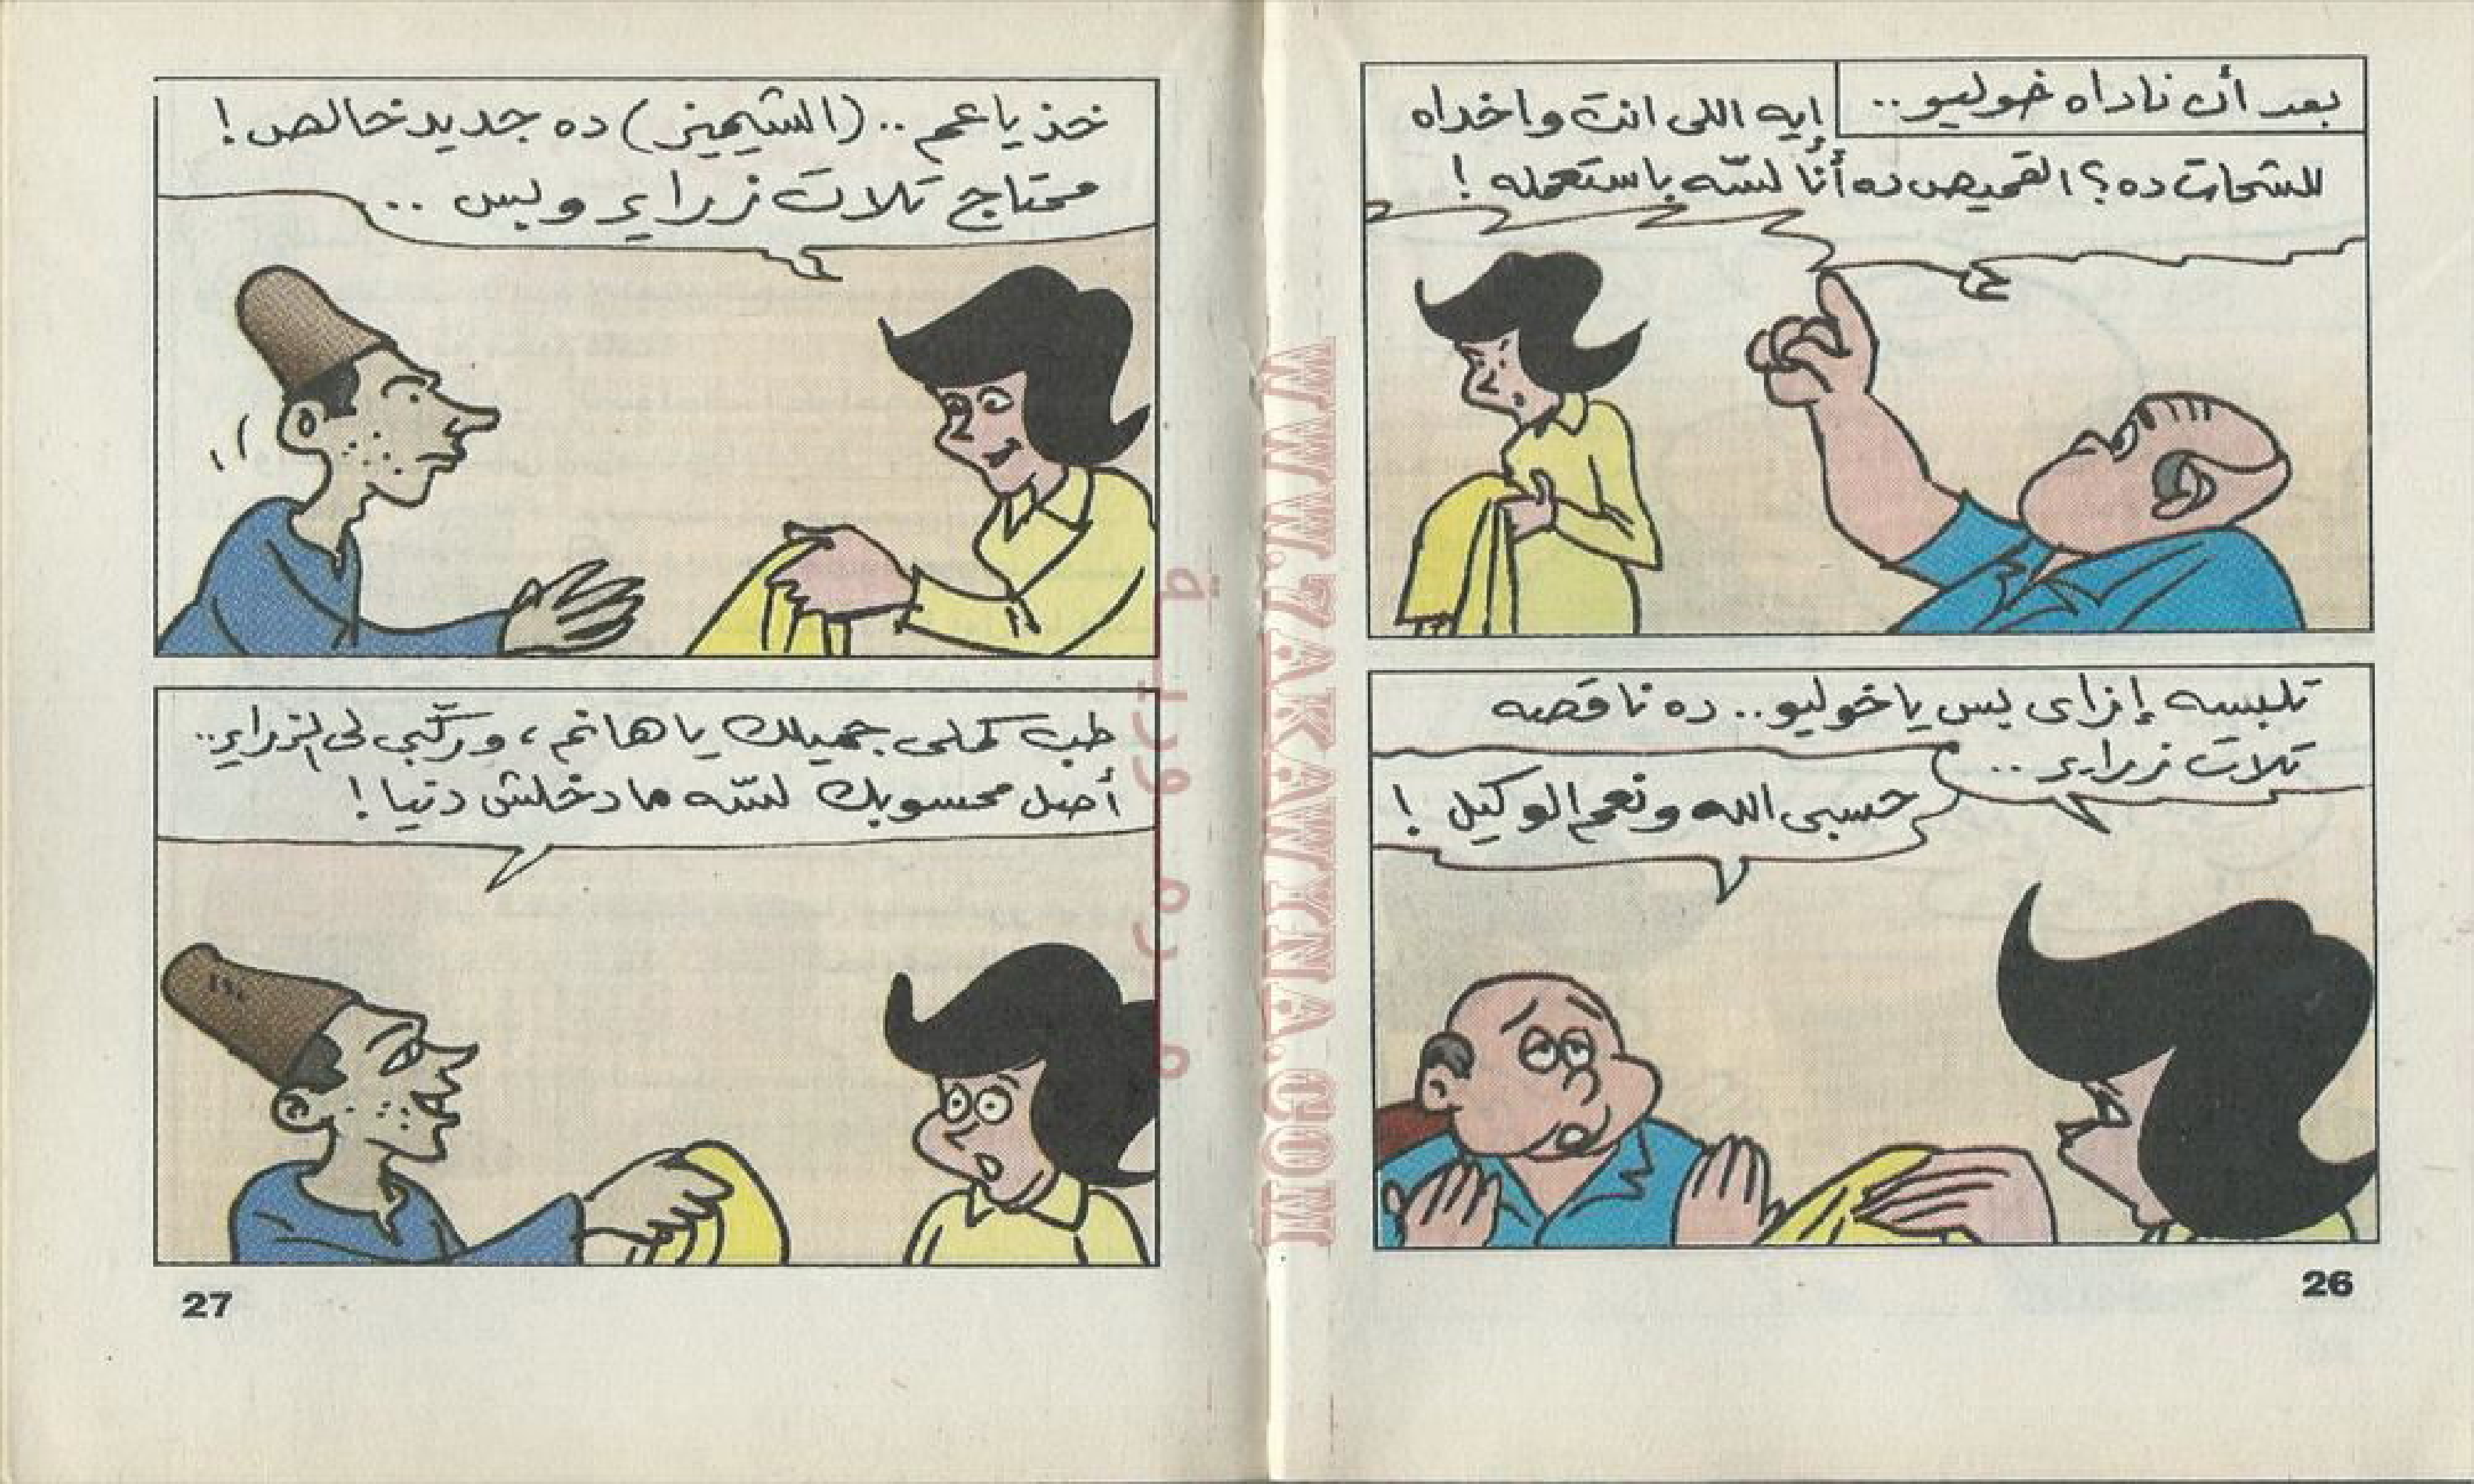 بعد أن ناداه خوليو..
إيه اللى انت واخداه
للشحات ده؟ القميص ده أنا لسّه باستعمله!
تلبسه إزاى بس يا خوليو.. ده ناقصه
تلات زراير..
حسبى الله ونعم الوكيل!
26
خذ يا عم.. (الشيميز) ده جديد خالص!
محتاج تلات زراير وبس..
طب كملى جميلك يا هانم، وركّبى لى الزراير..
أصل محسوبك لسّه ما دخلش دنيا!
27
WWW.7AKAWYNA.COM